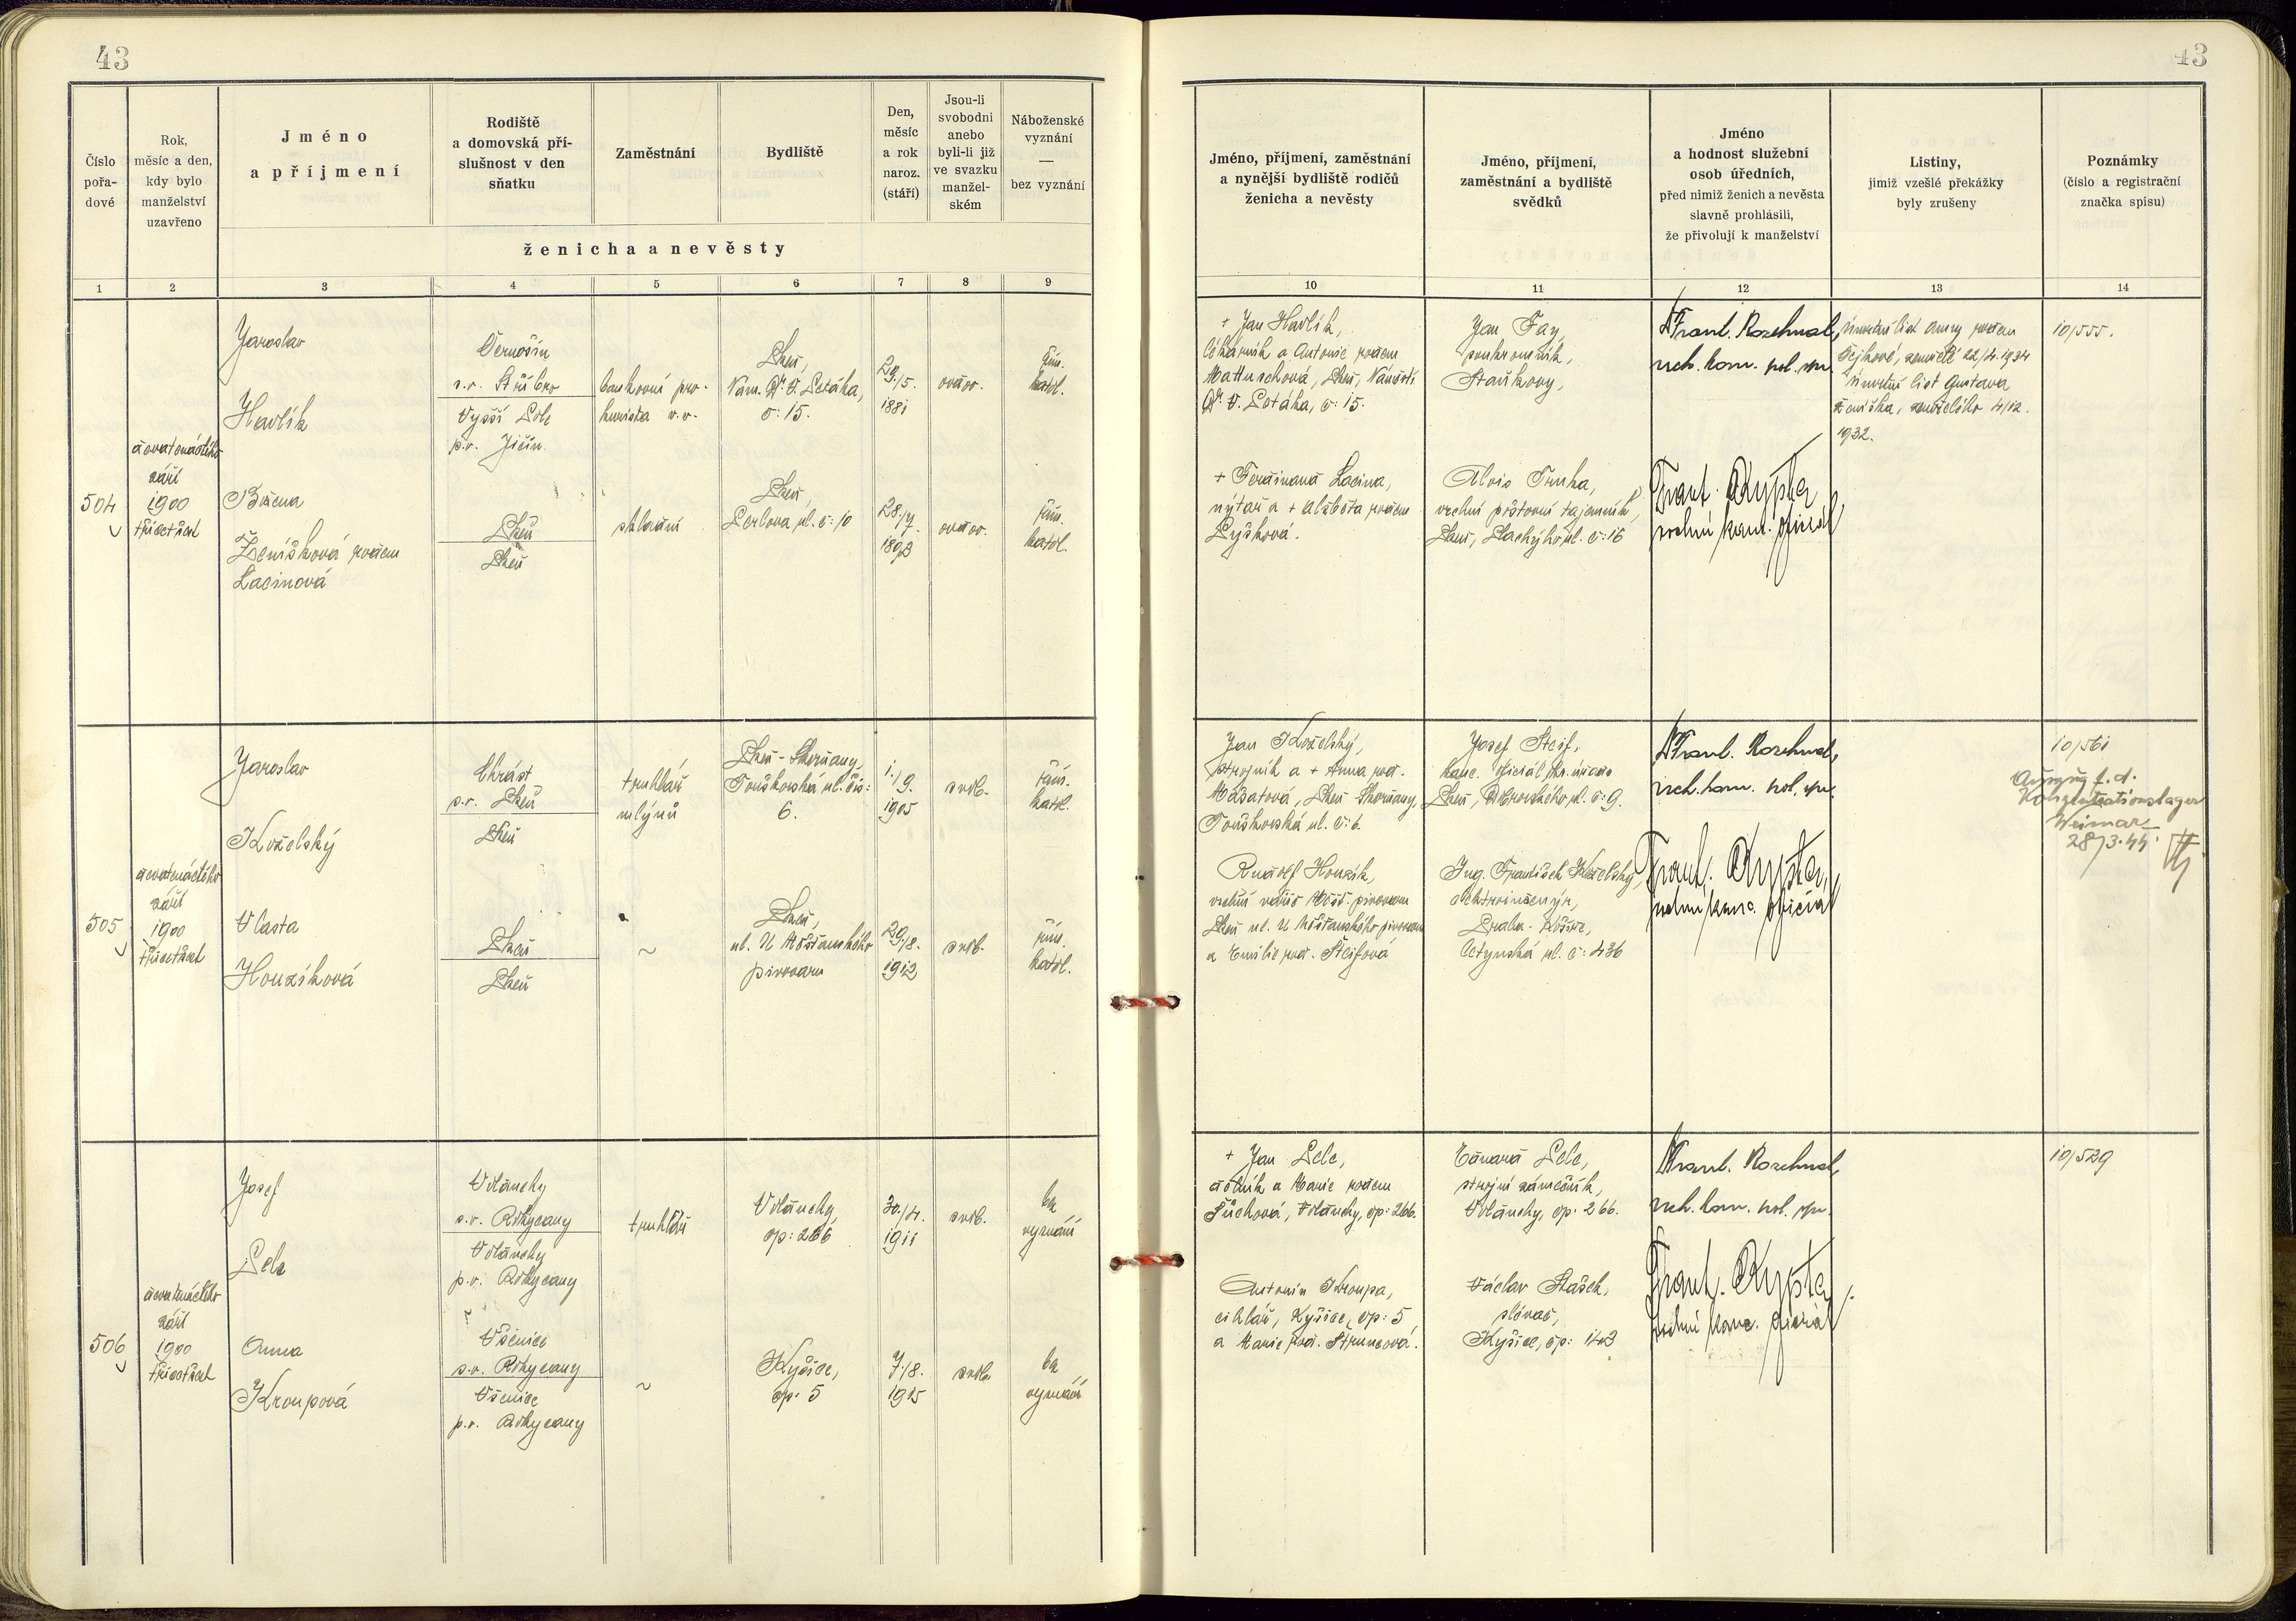 43
Číslo
pořa-
dové
Rok,
měsíc a den,
kdy bylo
manželství
uzavřeno
Jméno
a příjmení
Rodiště
a domovská pří-
slušnost v den
sňatku
Zaměstnání
Bydliště
Den,
měsíc
a rok
naroz.
(stáří)
Jsou-li
svobodni
anebo
byli-li již
ve svazku
manžel-
ském
Náboženské
vyznání
—
bez vyznání
ženicha a nevěsty
1 2 3 4 5 6 7 8 9
504
devatenáctého
září
1900
třicet šest
Jaroslav
Havlík
Černošín
s.o. Stříbro
Vyšší Lole
p.o. Jičín
bankovní pro-
kurista v.v.
Plzeň,
Nám. Dr. P. Petáka,
č: 15.
29./5.
1881
ovdov.
řím.
katol.
Božena
Ženíšková rodem
Lacinová
Plzeň
Plzeň
skladní
Plzeň,
Perlova ul. č: 10
28./7.
1893
ovdov.
řím.
katol.
505
devatenáctého
září
1900
třicet šest
Jaroslav
Koželský
Chrást
s.o. Plzeň
Plzeň
truhlář
mlýnů
Plzeň-Skvrňany,
Touškovská ul. čís:
6.
1./9.
1905
svob.
řím.
katol.
Vlasta
Houzíková
Plzeň
Plzeň
~
Plzeň,
ul. U Měšťanského
pivovaru
29./8.
1912
svob.
řím.
katol.
506
devatenáctého
září
1900
třicet šest
Josef
Lela
Volduchy
s.o. Rokycany
Volduchy
p.o. Rokycany
truhlář
Volduchy,
čp: 266
30./4.
1911
svob.
bez
vyznání
Anna
Kroupová
Všenice
s.o. Rokycany
Všenice
p.o. Rokycany
~
Kyšice,
čp: 5
7./8.
1915
svob.
bez
vyznání
43
Jméno, příjmení, zaměstnání
a nynější bydliště rodičů
ženicha a nevěsty
Jméno, příjmení,
zaměstnání a bydliště
svědků
Jméno
a hodnost služební
osob úředních,
před nimiž ženich a nevěsta
slavně prohlásili,
že přivolují k manželství
Listiny,
jimiž vzešlé překážky
byly zrušeny
Poznámky
(číslo a registrační
značka spisu)
10 11 12 13 14
+ Jan Havlík,
lékárník a Antonie rodem
Mattuschová, Plzeň, Náměstí
Dr. P. Petáka, č: 15.
Jan Fay,
soukromník,
Staňkovy,
Frant. Rozehnal,
vrch. kom. pol. spr.
Úmrtní list Anny rodem
Čejkové, zemřelé 22/4.1934
Úmrtní list Gustava
Ženíška, zemřelého 4/12.
1932.
10/555.
+ Ferdinand Lacina,
nýtař a + Alžběta rodem
Lyšková.
Alois Truha,
vrchní poštovní tajemník,
Plzeň, Plachýho ul. č: 16
Frant. Krypta
vrchní kanc. oficiál
Jan Koželský,
strojník a + Anna rod.
Másatová, Plzeň-Skvrňany,
Touškovská ul. č: 6.
Josef Štejf,
kanc. oficiál okr. úřadu
Plzeň, Dobrovského ul. č: 9.
Frant. Rozehnal,
vrch. kom. pol. spr.
10/561
Auszug f. d.
Konzentrationslager
Weimar
28/3.44.
Rudolf Houzík,
vrchní vážný Měšť. pivovaru
Plzeň ul. U Měšťanského pivovaru
a Emilie rod. Štejfová
Ing. František Koželský,
elektroinženýr,
Praha-Košíře,
Ctynská ul. č: 436
Frant. Krypta,
vrchní kanc. oficiál
+ Jan Lele,
dělník a Marie rodem
Tůchová, Volduchy, čp: 266.
Eduard Lele,
strojní zámečník,
Volduchy, čp: 266.
Frant. Rozehnal,
vrch. kom. pol. spr.
10/529
Antonín Kroupa,
cihlář, Kyšice, čp: 5,
a Marie rod. Štruncová.
Václav Stašek,
slévač,
Kyšice, čp: 143
Frant. Krypta,
vrchní kanc. oficiál